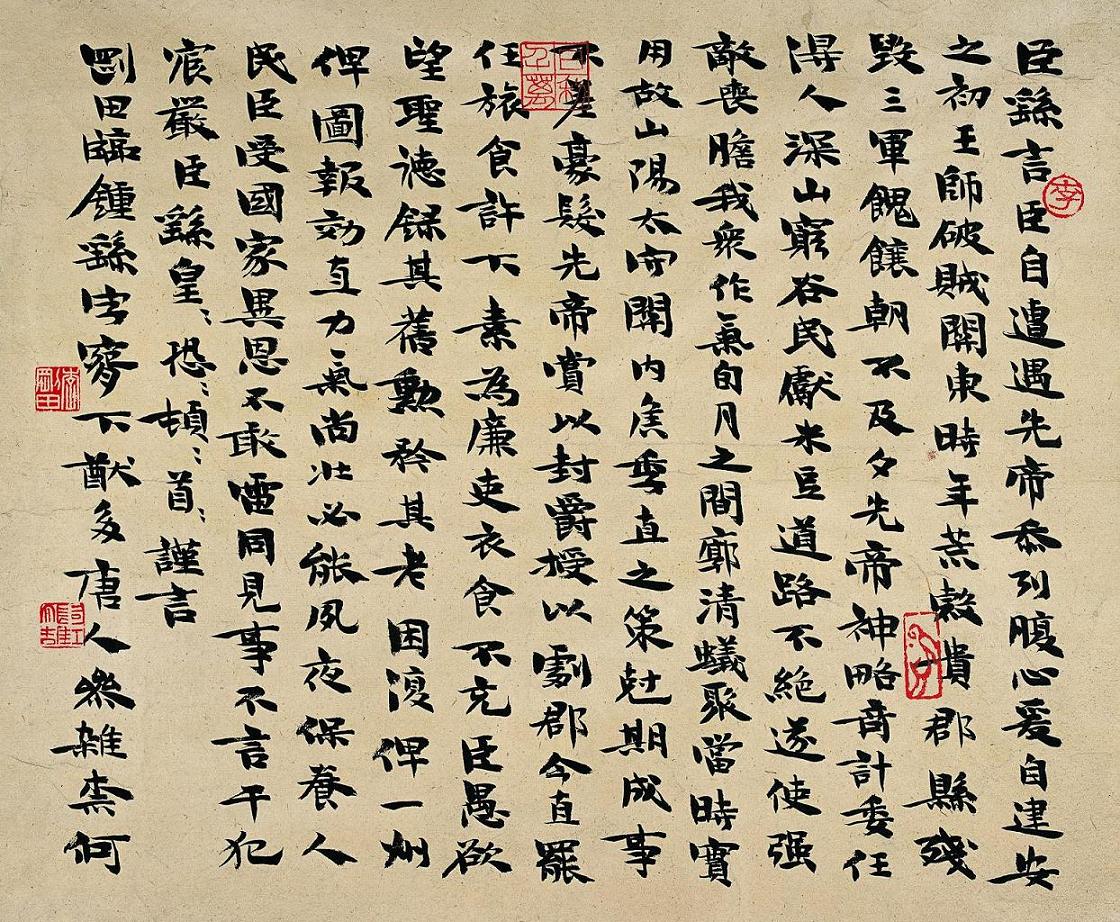 臣繇言臣自遭遇先帝忝列腹心爰自建安
之初王師破賊關東時年荒穀貴郡縣殘
毀三軍餽饟朝不及夕先帝神略奇計委任
得人深山窮谷民獻米豆道路不絕遂使强
敵喪膽我衆作氣旬月之間廓清蟻聚當時實
用故山陽太守關內侯季直之策尅期成事
不差豪髮先帝賞以封爵授以劇郡今直罷
任旅食許下素為廉吏衣食不充臣愚欲
望聖德錄其舊勲矜其老困復俾一州
俾圖報効直力氣尚壯必能夙夜保養人
民臣受國家異恩不敢雷同見事不言干犯
宸嚴臣繇皇:恐:頓:首:謹言
剛田臨鍾繇字下猷多唐人叅雜柰何